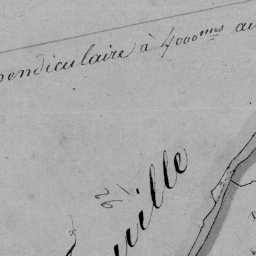 pendiculaire à 4000ms au
ville
26